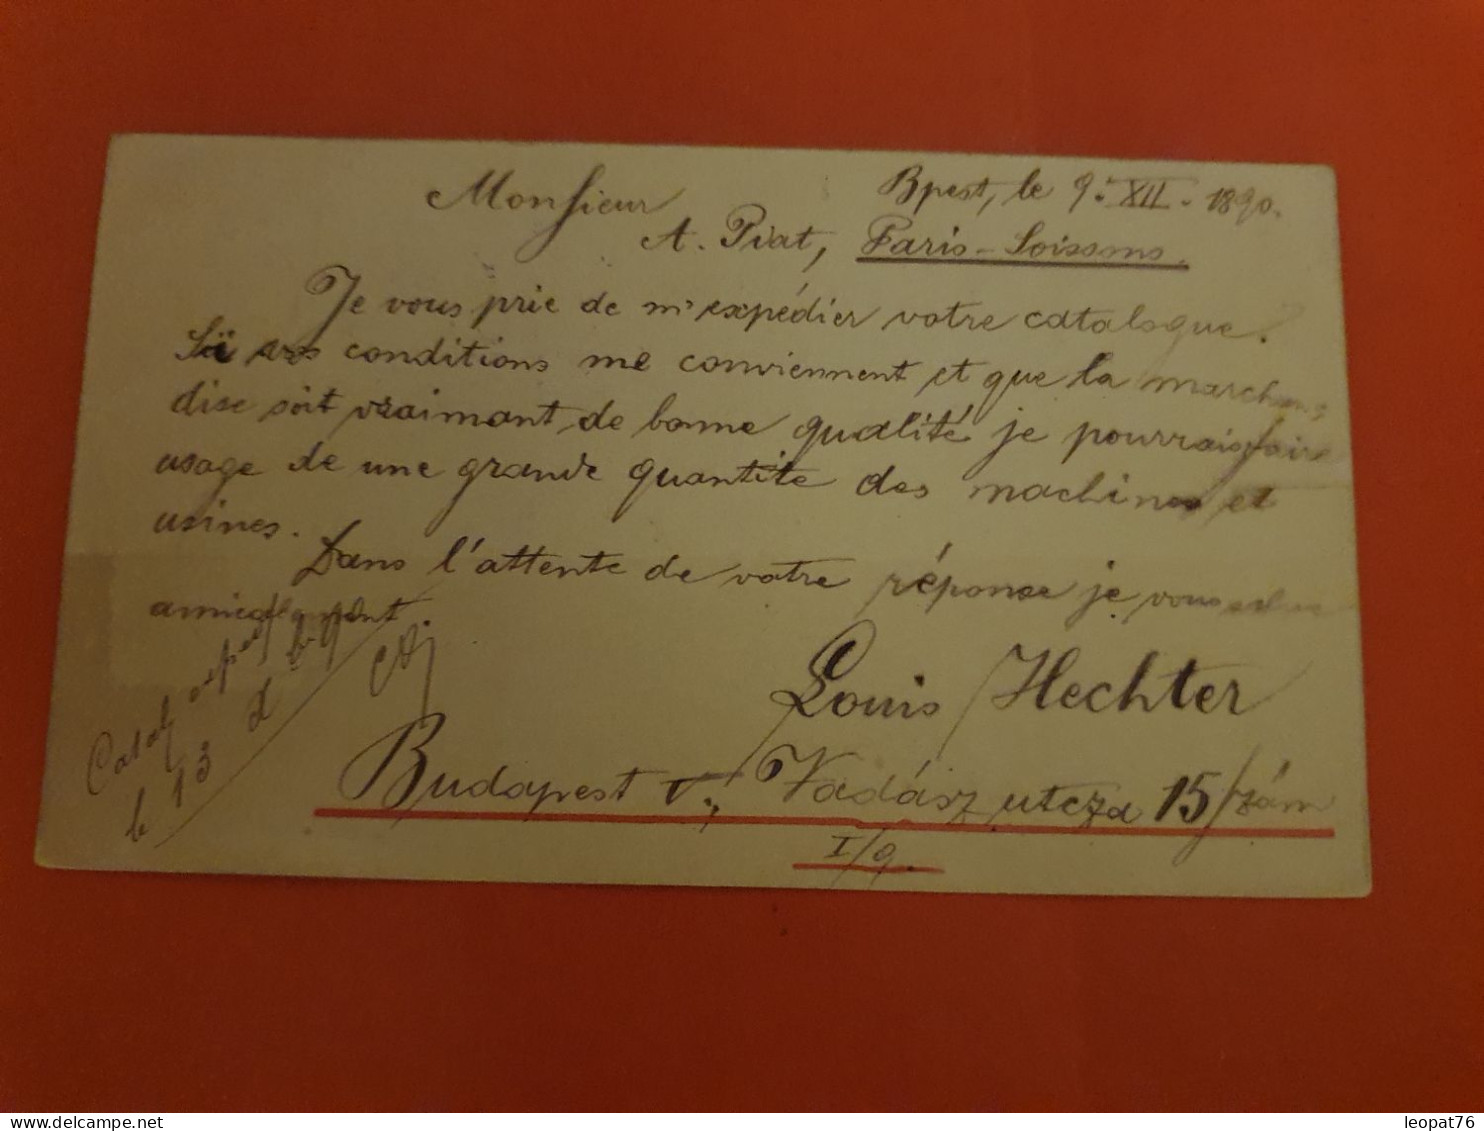 Bpest, le 9. XII. 1890.
Monsieur
A. Piat, Paris-Soissons.
Je vous prie de m'expédier votre catalogue.
Si vos conditions me conviennent et que la marchan-
dise soit vraimant de bonne qualité je pourrais faire
usage de une grande quantite des machines et
usines.
Dans l'attente de votre réponse je vous
amicalement.
Louis Hechter
Budapest V., Vadász utcza 15/zám
I/9.
Catal exped
le 13 d
leopat76